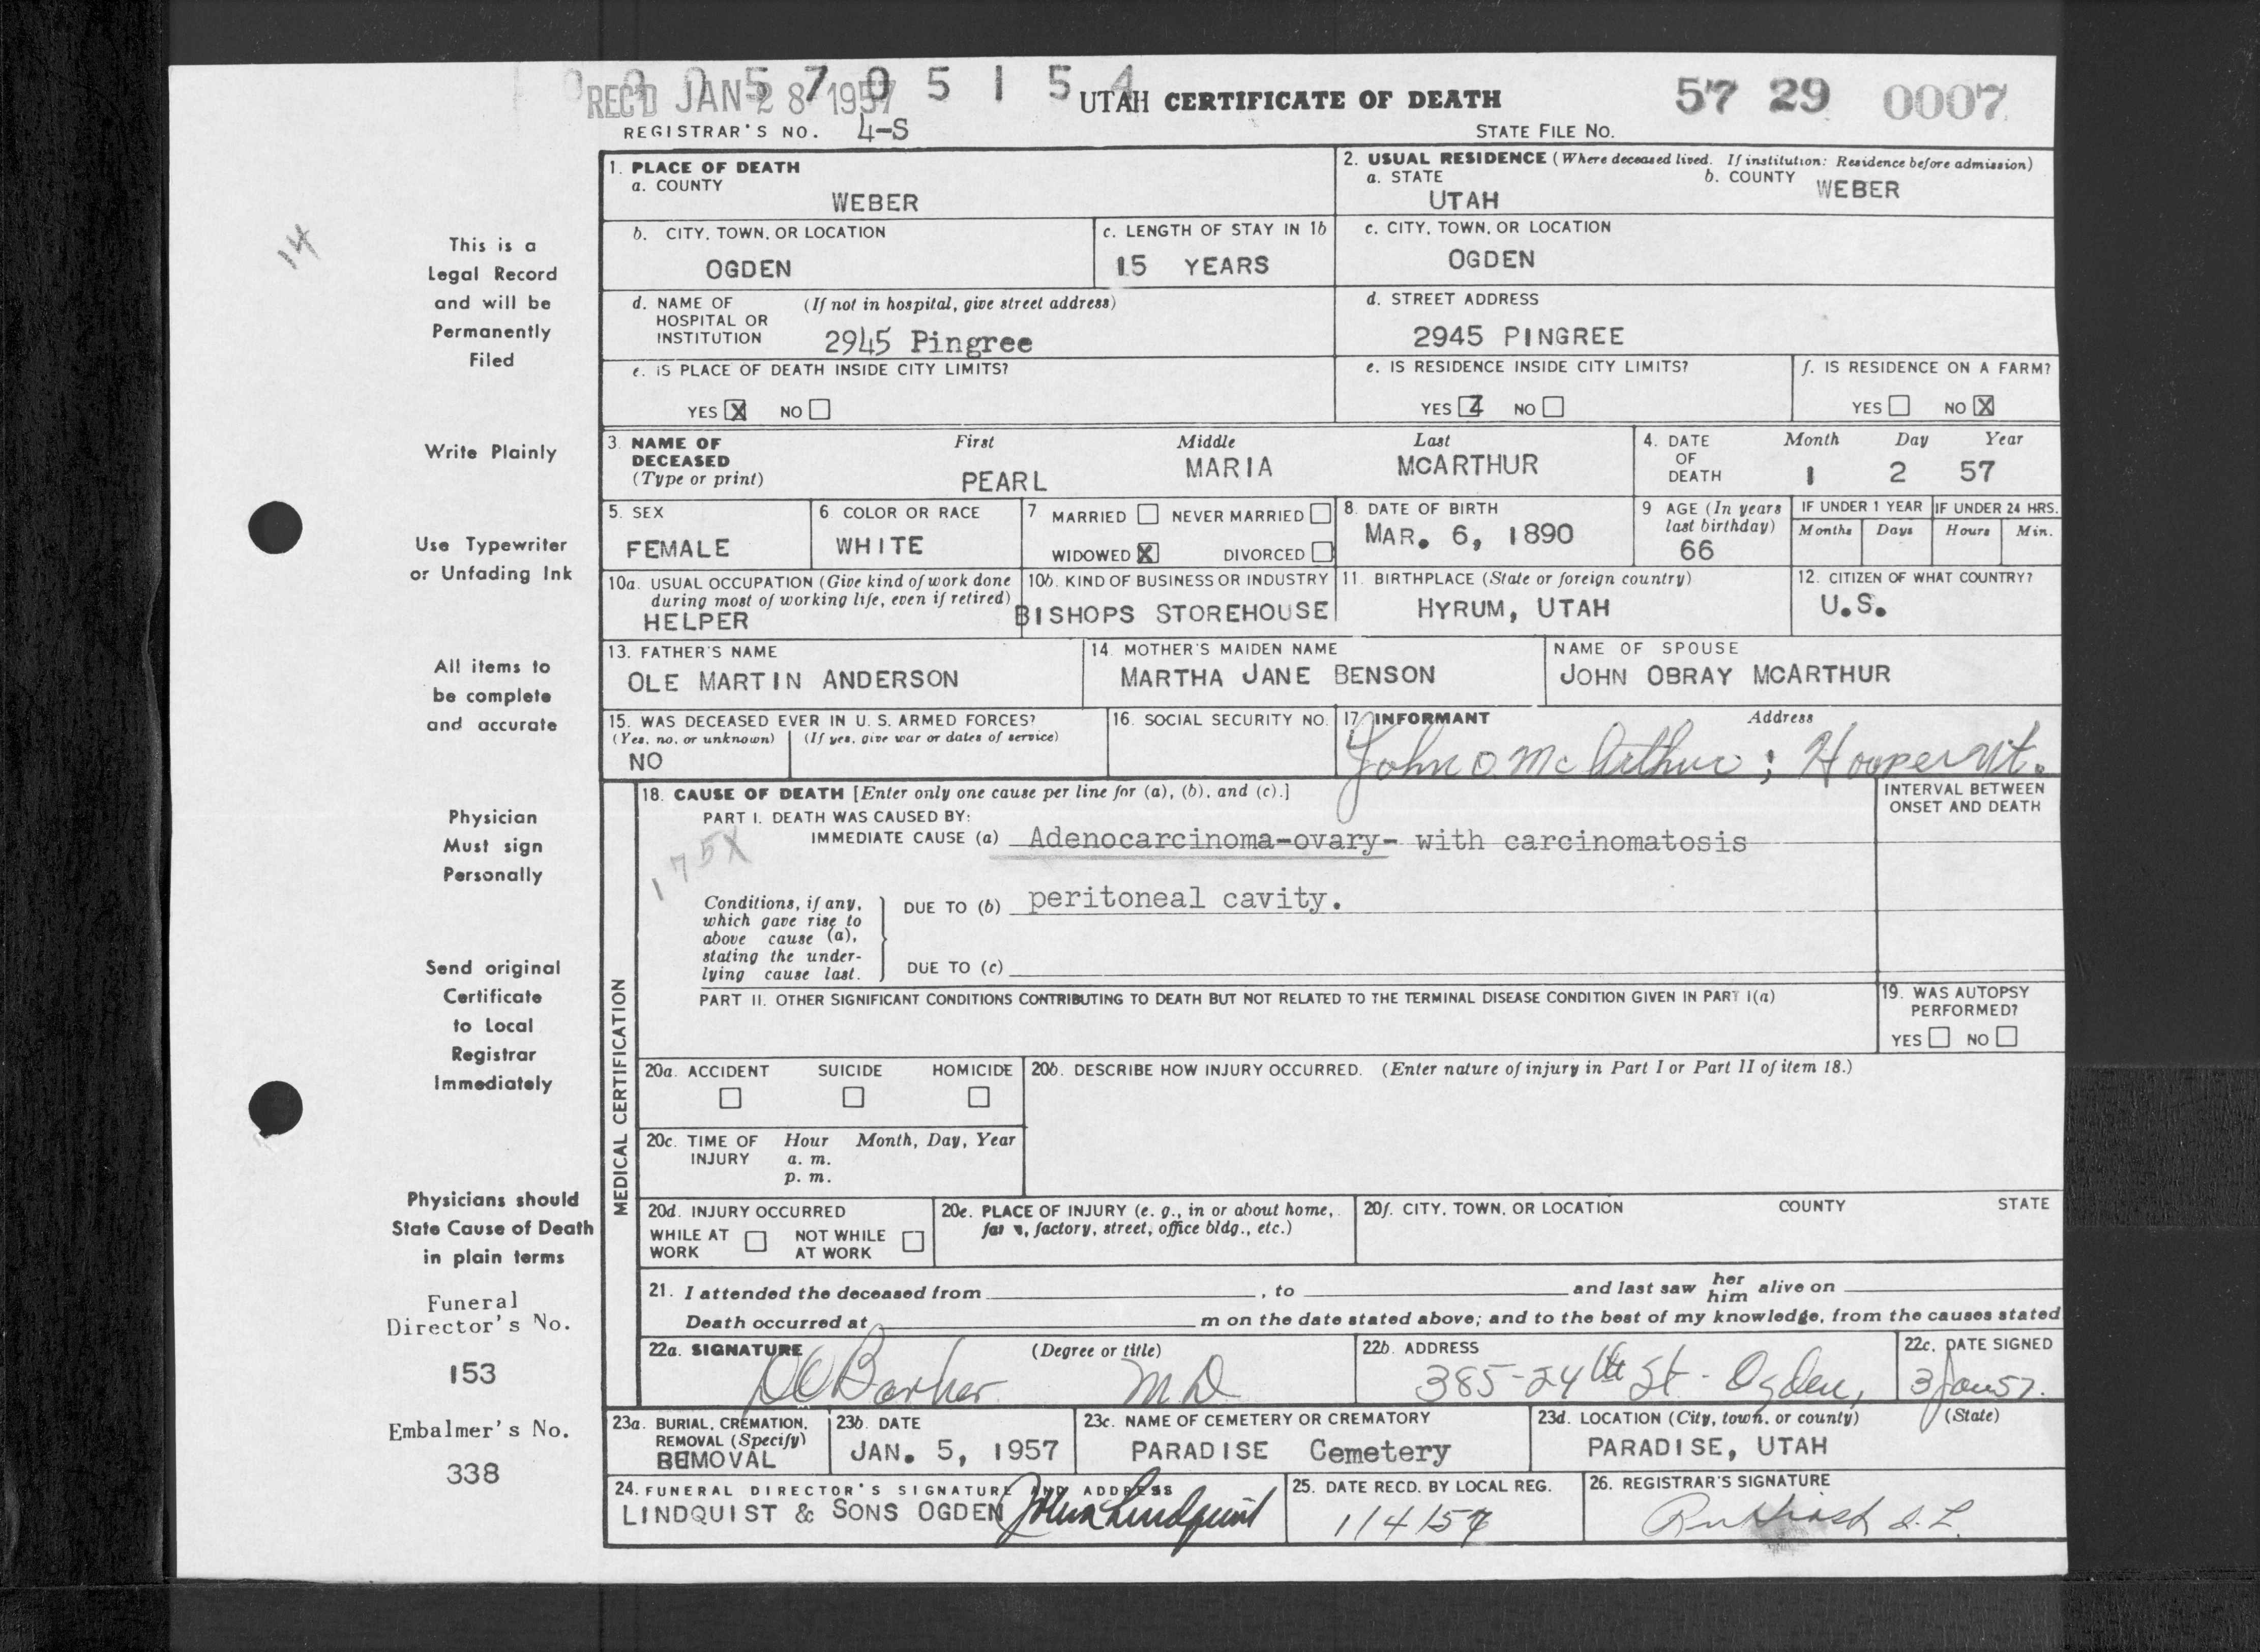 0 0 0 5 7 0 5 1 5 4
REC'D JAN 28 1957
UTAH CERTIFICATE OF DEATH
57 29 0007
REGISTRAR'S NO. 4-S
STATE FILE NO.
14
This is a
Legal Record
and will be
Permanently
Filed
Write Plainly
Use Typewriter
or Unfading Ink
All items to
be complete
and accurate
Physician
Must sign
Personally
Send original
Certificate
to Local
Registrar
Immediately
Physicians should
State Cause of Death
in plain terms
Funeral
Director's No.
153
Embalmer's No.
338
1. PLACE OF DEATH
a. COUNTY
WEBER
2. USUAL RESIDENCE (Where deceased lived. If institution: Residence before admission)
a. STATE
UTAH
b. COUNTY WEBER
b. CITY, TOWN, OR LOCATION
OGDEN
c. LENGTH OF STAY IN 1b
15 YEARS
c. CITY, TOWN, OR LOCATION
OGDEN
d. NAME OF (If not in hospital, give street address)
HOSPITAL OR
INSTITUTION 2945 Pingree
d. STREET ADDRESS
2945 PINGREE
e. IS PLACE OF DEATH INSIDE CITY LIMITS?
YES X NO
e. IS RESIDENCE INSIDE CITY LIMITS?
YES Z NO
f. IS RESIDENCE ON A FARM?
YES NO X
3. NAME OF First Middle Last
DECEASED
(Type or print) PEARL MARIA MCARTHUR
4. DATE Month Day Year
OF
DEATH 1 2 57
5. SEX
FEMALE
6. COLOR OR RACE
WHITE
7. MARRIED NEVER MARRIED
WIDOWED X DIVORCED
8. DATE OF BIRTH
MAR. 6, 1890
9. AGE (In years
last birthday)
66
IF UNDER 1 YEAR
Months Days
IF UNDER 24 HRS.
Hours Min.
10a. USUAL OCCUPATION (Give kind of work done
during most of working life, even if retired)
HELPER
10b. KIND OF BUSINESS OR INDUSTRY
BISHOPS STOREHOUSE
11. BIRTHPLACE (State or foreign country)
HYRUM, UTAH
12. CITIZEN OF WHAT COUNTRY?
U.S.
13. FATHER'S NAME
OLE MARTIN ANDERSON
14. MOTHER'S MAIDEN NAME
MARTHA JANE BENSON
NAME OF SPOUSE
JOHN OBRAY MCARTHUR
15. WAS DECEASED EVER IN U. S. ARMED FORCES?
(Yes, no, or unknown) (If yes, give war or dates of service)
NO
16. SOCIAL SECURITY NO.
17. INFORMANT Address
John O McArthur ; Hooper Ut.
MEDICAL CERTIFICATION
18. CAUSE OF DEATH [Enter only one cause per line for (a), (b), and (c).]
INTERVAL BETWEEN
ONSET AND DEATH
PART I. DEATH WAS CAUSED BY:
IMMEDIATE CAUSE (a) Adenocarcinoma-ovary- with carcinomatosis
175X
Conditions, if any,
which gave rise to
above cause (a),
stating the under-
lying cause last.
DUE TO (b) peritoneal cavity.
DUE TO (c)
PART II. OTHER SIGNIFICANT CONDITIONS CONTRIBUTING TO DEATH BUT NOT RELATED TO THE TERMINAL DISEASE CONDITION GIVEN IN PART I(a)
19. WAS AUTOPSY
PERFORMED?
YES NO
20a. ACCIDENT SUICIDE HOMICIDE
20b. DESCRIBE HOW INJURY OCCURRED. (Enter nature of injury in Part I or Part II of item 18.)
20c. TIME OF Hour Month, Day, Year
INJURY a. m.
p. m.
20d. INJURY OCCURRED
WHILE AT NOT WHILE
WORK AT WORK
20e. PLACE OF INJURY (e. g., in or about home,
farm, factory, street, office bldg., etc.)
20f. CITY, TOWN, OR LOCATION COUNTY STATE
21. I attended the deceased from , to and last saw her him alive on
Death occurred at m on the date stated above; and to the best of my knowledge, from the causes stated
22a. SIGNATURE (Degree or title)
Barker M D
22b. ADDRESS
385-24th St - Ogden,
22c. DATE SIGNED
3 Jan 57.
23a. BURIAL, CREMATION,
REMOVAL (Specify)
REMOVAL
23b. DATE
JAN. 5, 1957
23c. NAME OF CEMETERY OR CREMATORY
PARADISE Cemetery
23d. LOCATION (City, town, or county) (State)
PARADISE, UTAH
24. FUNERAL DIRECTOR'S SIGNATURE AND ADDRESS
LINDQUIST & SONS OGDEN John Lindquist
25. DATE RECD. BY LOCAL REG.
1/4/57
26. REGISTRAR'S SIGNATURE